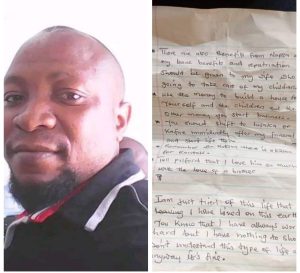 There are also Benefits from Napsa
my leave benefits and repatriation
Should be given to my wife She
going to take care of my children
use the money to build a house
Your self and the children and the
other money you start business
You should shift to Lusaka or
Kafue immidiatly after my burial
and start life
Tell
that I love him so much
with the love of a brother
I am just tired of this life that
I have lived on this ear
You Know that I have always wor
hard but I have nothing to sho
don't understand this type of life
anyway it's fine.